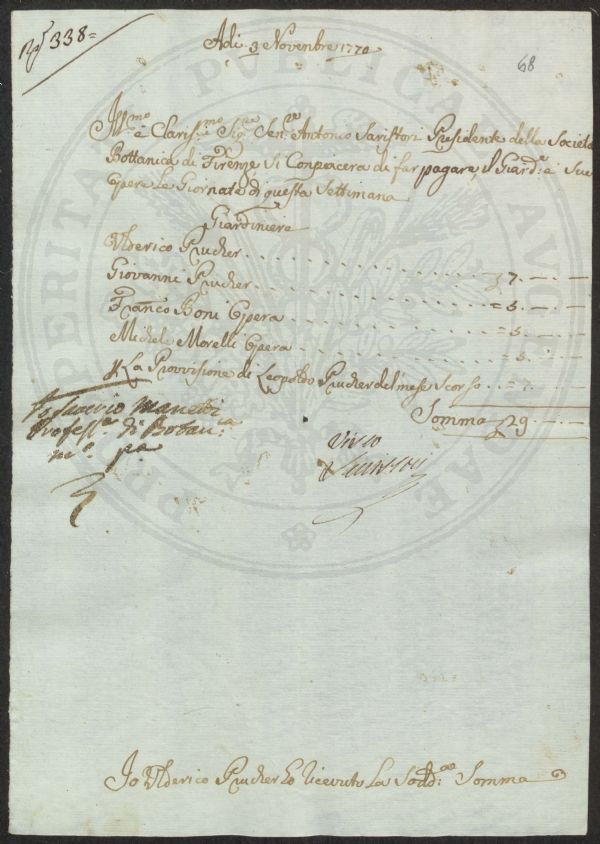 N.° 338=
68
Adi. 3 Novenbre 1770
Ill.mo e Clariss.mo Sig.re Sen.re Antonio Saristori Presidente della Societa
Bottanica di Firenze Si Conpiacera di far pagare, il Giard.e e Sue
Opere Le Giornate di questa Settimana
Giardiniere
Ulderico Prucher . . . . . . . . . . . . 7. — . —
Giovanni Prucher . . . . . . . . . . = 5. — . —
Franco Boni Opera . . . . . . . . . = 5. — . —
Michele Morelli Opera . . . . . . . . = 5. — . —
La Provisione di Leopoldo Prucher del mese Scorso . . = 7. — . —
Somma 29. — . —
Io Saverio Manetti
Profess.e di Botan.ca
m.o pa
Visto
Io Ulderico Prucher ho Ricevuto La Sodd.a Somma